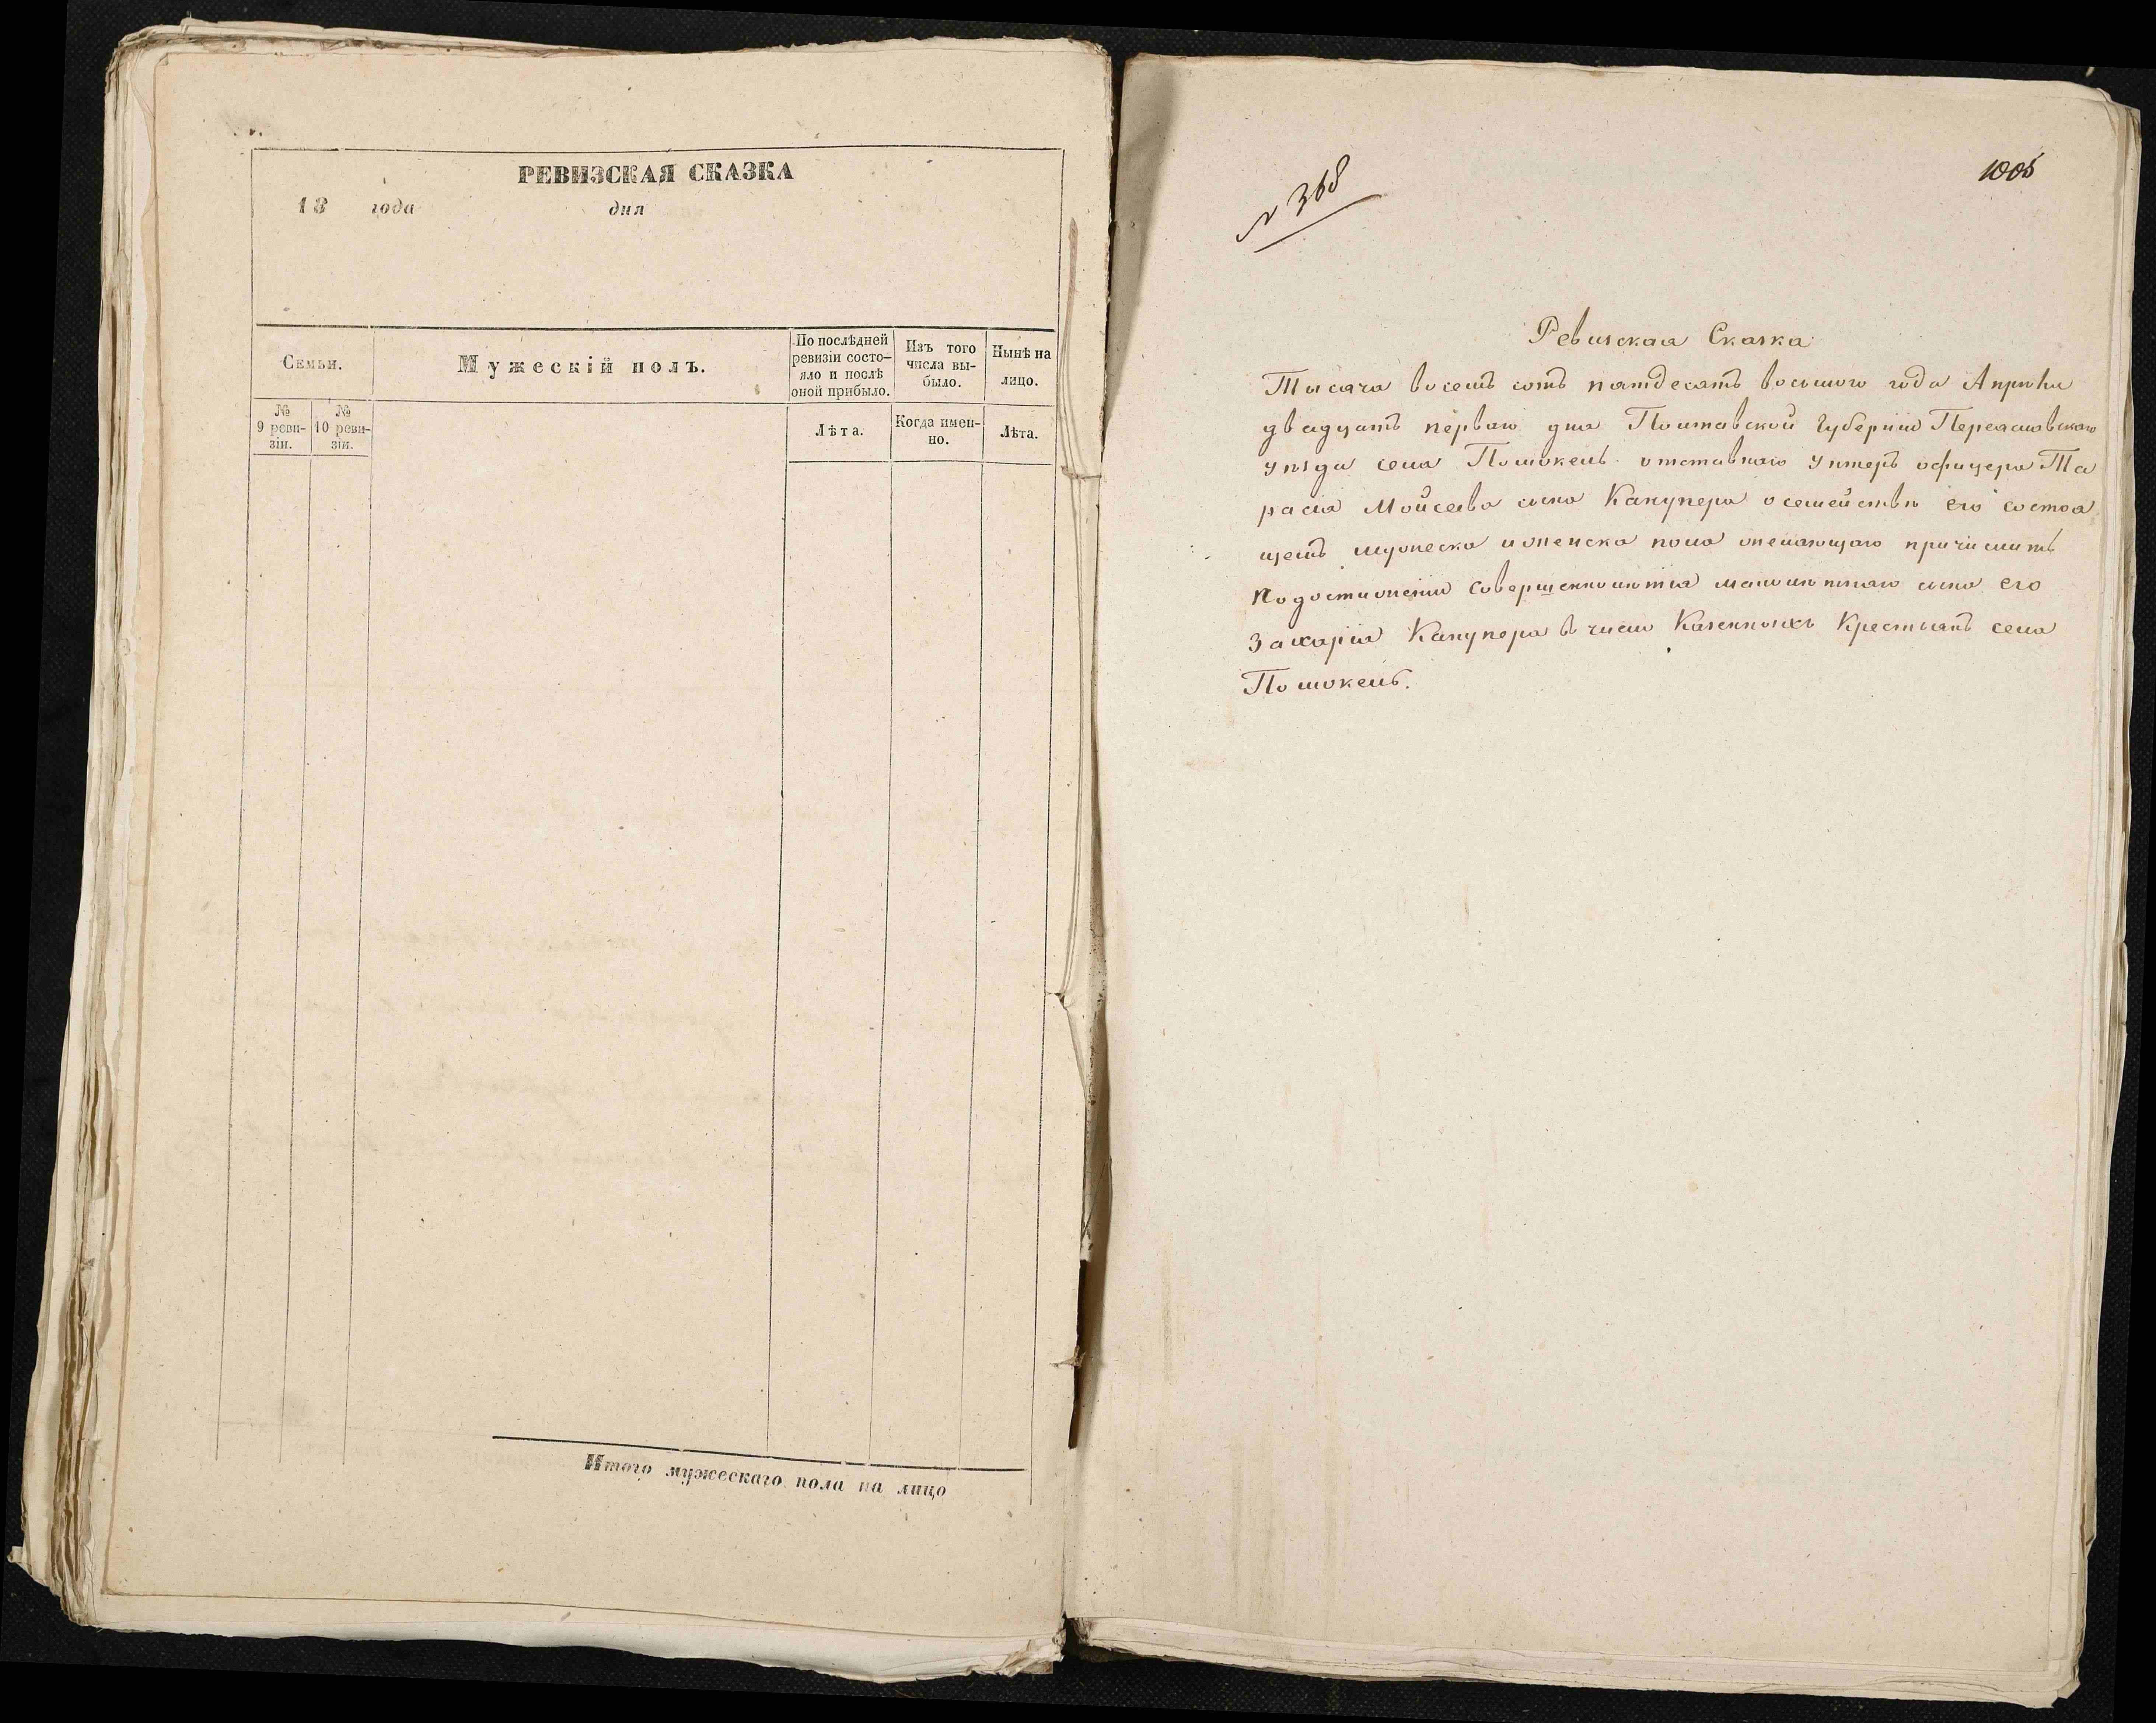 РЕВИЗСКАЯ СКАЗКА
18 года дня
Семьи.
Мужескій полъ.
По послѣдней ревизіи состо-
яло и послѣ
оной прибыло.
Изъ того
числа вы-
было.
Нынѣ на
лицо.
№
9 реви-
зіи.
№
10 реви-
зіи.
Лѣта.
Когда имен-
но.
Лѣта.
Итого мужескаго пола на лицо
№ 368
1005
Ревизская Сказка
Тысяча восемь сотъ пятдесятъ восьмого года Апрѣля
двадцать первого дня Полтавской Губерніи Переяславскаго
уѣзда села Положекъ отставнаго Унтеръ офицера Та
расія Мойсеева сына Канупера о семействѣ его состоя
щемъ мужеска и женска пола желающаго причислить
по достиженіи совершеннолѣтія малолѣтнаго сына его
Захарія Канупера въ число Казенныхъ Крестьянъ села